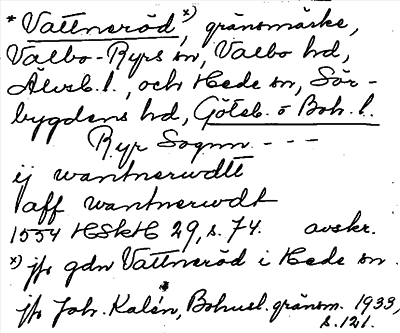 * Vattneröd x), gränsmärke,
Valbo-Ryrs sn, Valbo hd,
Älvsb. l., och Hede sn, Sör-
bygdens hd, Göteb. o Boh. l.
Ryr Sognn - - -
ij wantnerwdtt
aff wantnerwdt
1554 HSkH 29, s. 74. avskr.
x) jfr gdn Vattneröd i Hede sn.
jfr Joh. Kalén, Bohusl. gränsm. 1933,
s. 121.